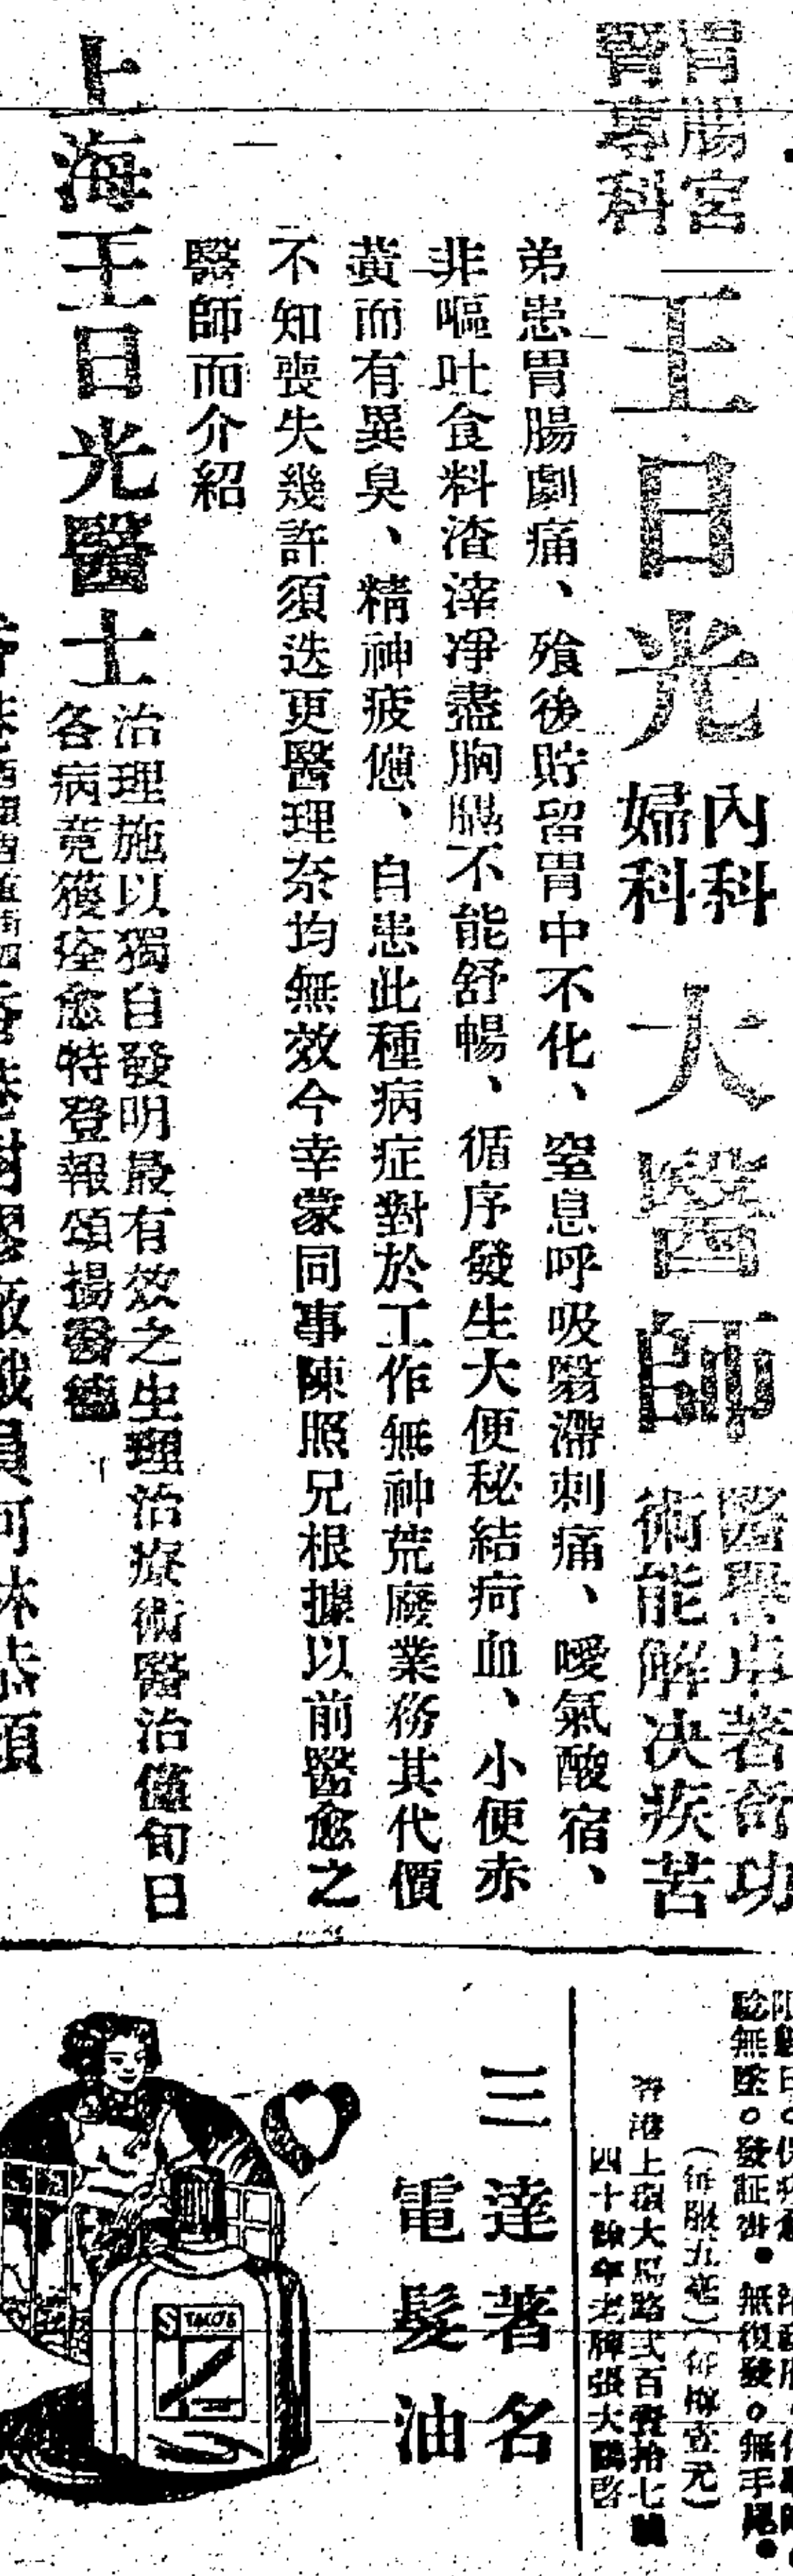 胃腸宮
胃專科
王日光
內科
婦科
大醫師
醫學卓著奇功
術能解決疾苦
弟患胃腸劇痛、飧後貯留胃中不化、窒息呼吸翳滯刺痛、噯氣酸宿、
非嘔吐食料渣滓凈盡胸膈不能舒暢、循序發生大便秘結疴血、小便赤
黃而有異臭、精神疲憊、自患此種病症對於工作無神荒廢業務其代價
不知喪失幾許須迭更醫理奈均無效今幸蒙同事陳照兄根據以前醫愈之
醫師而介紹
上海王日光醫士
治理施以獨自發明最有效之生理治療術醫治僅旬日
各病竟獲痊愈特登報頌揚醫德
香港樹膠廠職員何林恭頌
三達著名
電髮油
TACO'S
香港上環大馬路弍百 拾七號
四十餘年老牌張大 啓
無復發。無手尾